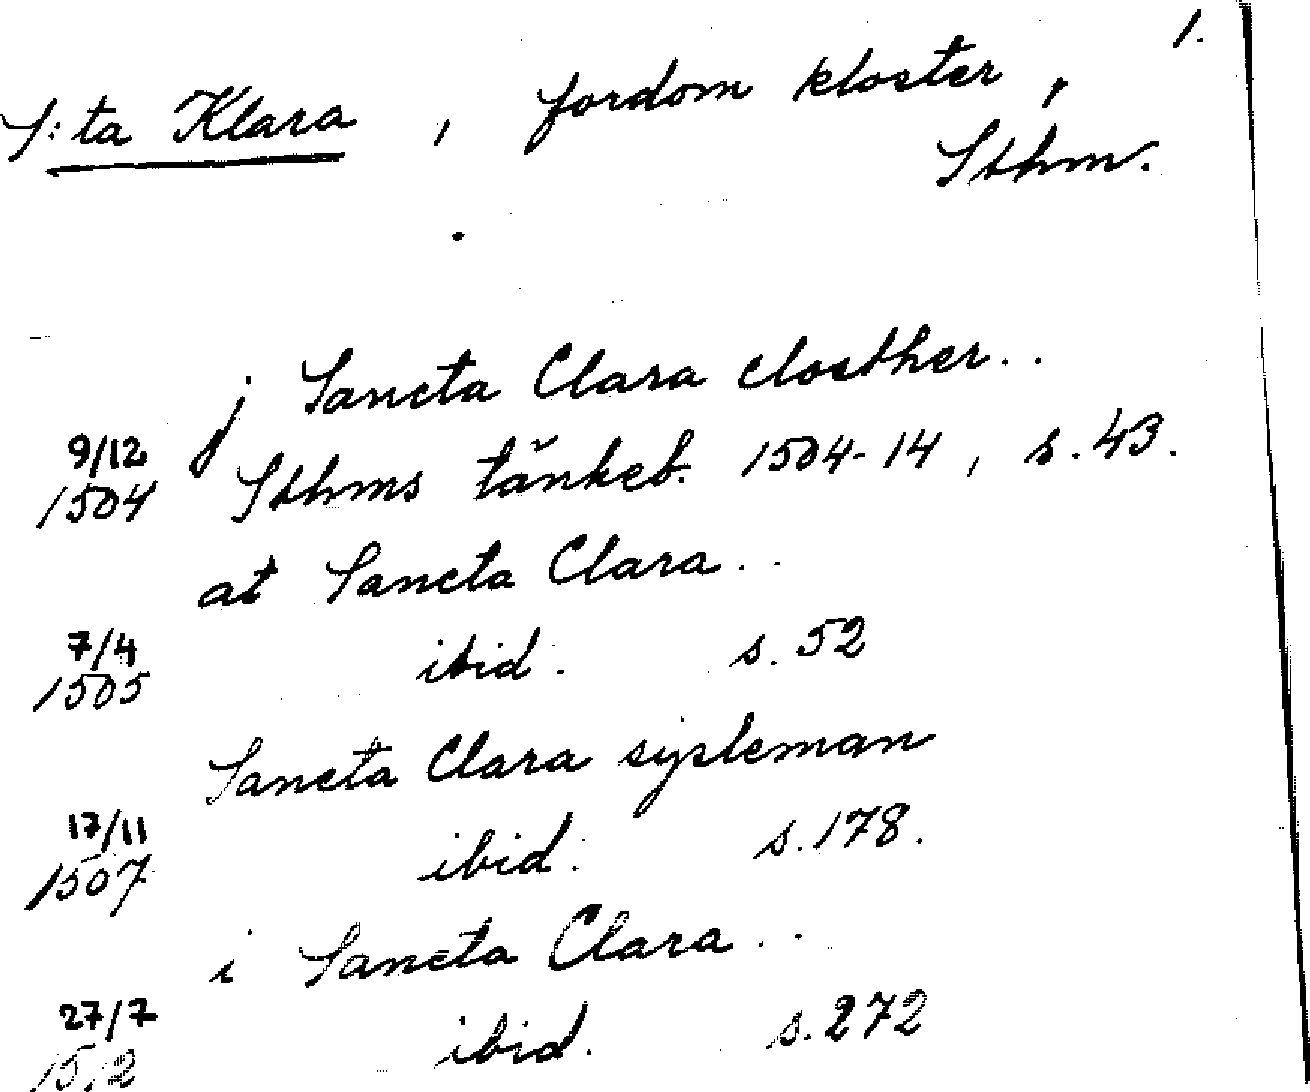 1.
S:ta Klara, fordom kloster,
Sthm.
j Sancta Clara closther..
9/12 1504 Sthms tänkeb. 1504-14, s. 43.
at Sancta Clara..
7/4 1505 ibid. s. 52
Sancta Clara sysleman
17/11 1507 ibid. s. 178.
i Sancta Clara..
27/7 1512 ibid. s. 272